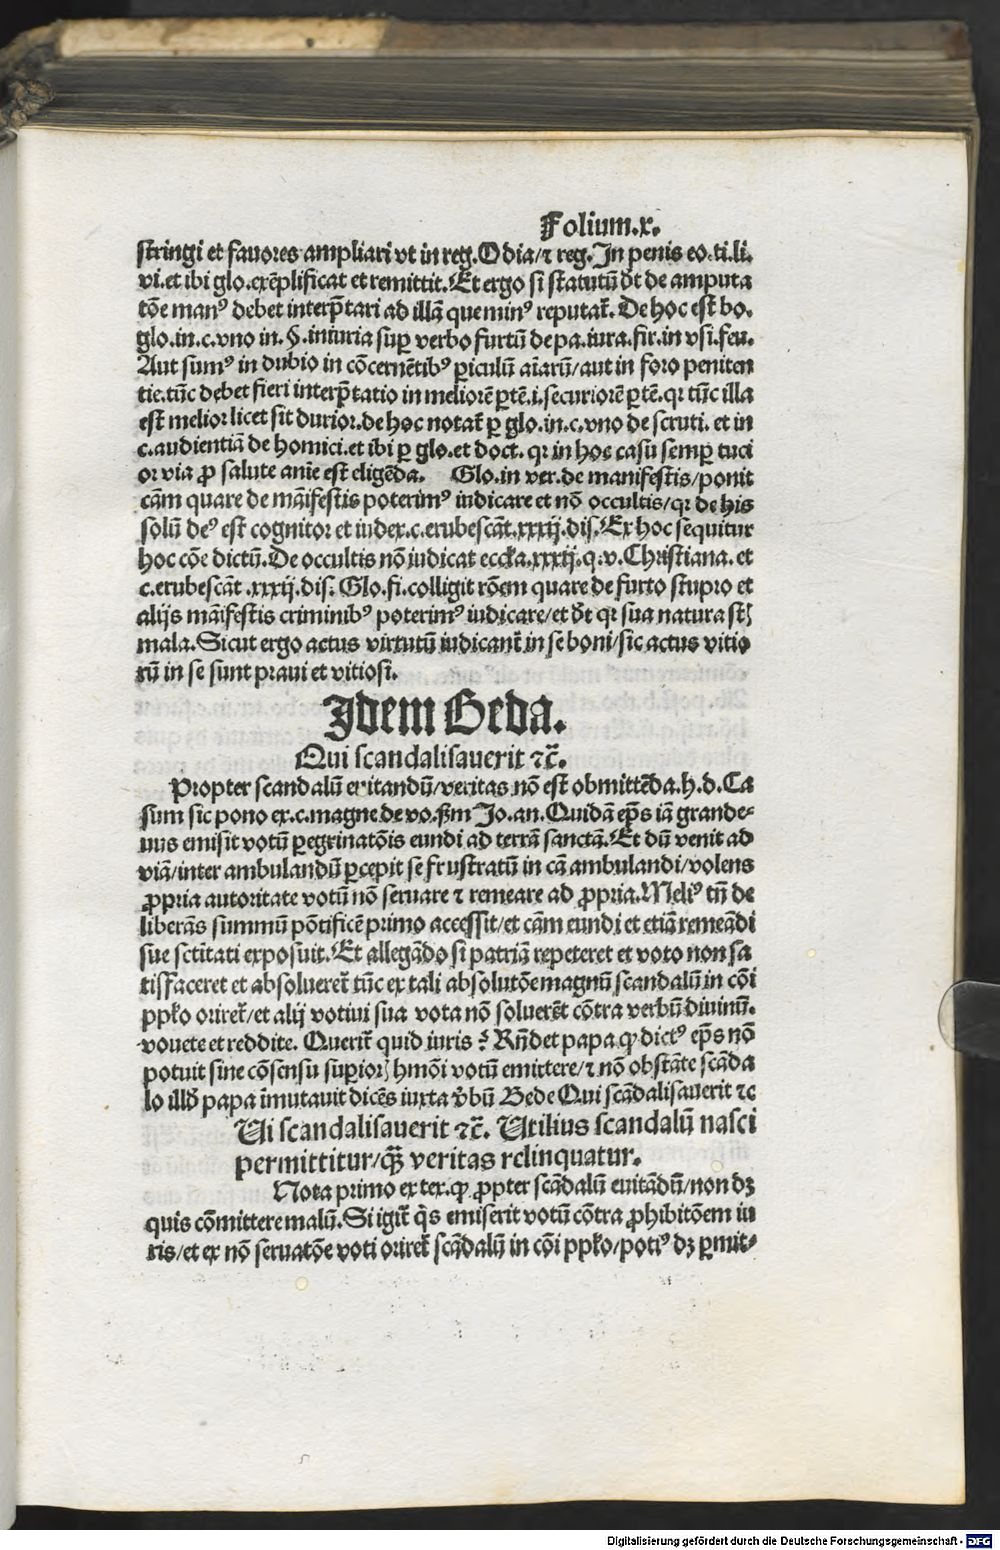 Folium.x.
stringi et fauores ampliari vt in reg. Odia/⁊ reg. In penis eo.ti.li.
vi.et ibi glo.exẽplificat et remittit. Et ergo si statutũ dt̄ de amputa
tõe manꝰ debet interp̃tari ad illã que minꝰ reputat̃. De hoc est bo.
glo.in.c.vno in.§.iniuria suꝑ verbo furtũ de pa.iura.fir.in vsi.feu.
Aut sumꝰ in dubio in cõcernẽtibꝰ ꝑiculũ aĩarũ/aut in foro peniten
tie.tũc debet fieri interp̃tatio in meliorẽ ꝑtẽ.i.securiorẽ ꝑtẽ.qꝛ tũc illa
est melior licet sit durior.de hoc notat̃ ꝑ glo.in.c.vno de scruti. et in
c.audientiã de homici.et ibi ꝑ glo.et doct. qꝛ in hoc casu semꝑ tuci
or via ꝓ salute anĩe est eligẽda. Glo.in ver.de manifestis/ponit
cãm quare de mãifestis poterimꝰ iudicare et nõ occultis/qꝛ de his
solũ deꝰ est cognitor et iudex.c.erubescãt.xxxij.dis. Ex hoc sequitur
hoc cõe dictũ. De occultis nõ iudicat eccľa.xxxij.q.v.Christiana. et
c.erubescãt .xxxij.dis. Glo.fi.colligit rõem quare de furto stupro et
alijs mãifestis criminibꝰ poterimꝰ iudicare/et dt̄ qꝛ sua natura st̃
mala. Sicut ergo actus virtutũ iudicant̃ in se boni/sic actus vitio
rũ in se sunt praui et vitiosi.
Idem Beda.
Qui scandalisauerit ⁊c̃.
Propter scandalũ euitandũ/veritas nõ est obmittẽda.h.d. Ca
sum sic pono ex.c.magne de vo.ẜm Jo.an. Quidã ep̃s iã grande-
uus emisit votũ ꝑegrinatõis eundi ad terrã sanctã. Et dũ venit ad
viã/inter ambulandũ ꝑcepit se frustratũ in cã ambulandi/volens
ꝓpria autoritate votũ nõ seruare ⁊ remeare ad ꝓpria. Meliꝰ tñ de
liberãs summũ põtificẽ primo accessit/et cãm eundi et etiã remeãdi
sue sctĩtati exposuit. Et allegãdo si patriã repeteret et voto non sa
tisfaceret et absolueret̃ tũc ex tali absolutõe magnũ scandalũ in cõi
ppľo oriret̃/et alij votiui sua vota nõ soluerẽt cõtra verbũ diuinũ.
vouete et reddite. Querit̃ quid iuris? Rñdet papa ꝙ dictꝰ ep̃s nõ
potuit sine cõsensu superioꝝ hmõi votũ emittere/⁊ nõ obstãte scãda
lo illď papa ĩmutauit dicẽs iuxta v̾bũ Bede Qui scãdalisauerit ⁊c
Ui scandalisauerit ⁊c̃. Utilius scandalũ nasci
permittitur/q̃ȝ veritas relinquatur.
Nota primo ex tex.ꝙ ꝓpter scãdalũ euitãdũ/non dȝ
quis cõmittere malũ. Si igit̃ q̃s emiserit votũ cõtra ꝓhibitõem iu
ris/et ex nõ seruatõe voti oriret̃ scãdalũ in cõi ppľo/potiꝰ dȝ ꝑmit-
Digitalisierung gefördert durch die Deutsche Forschungsgemeinschaft - DFG